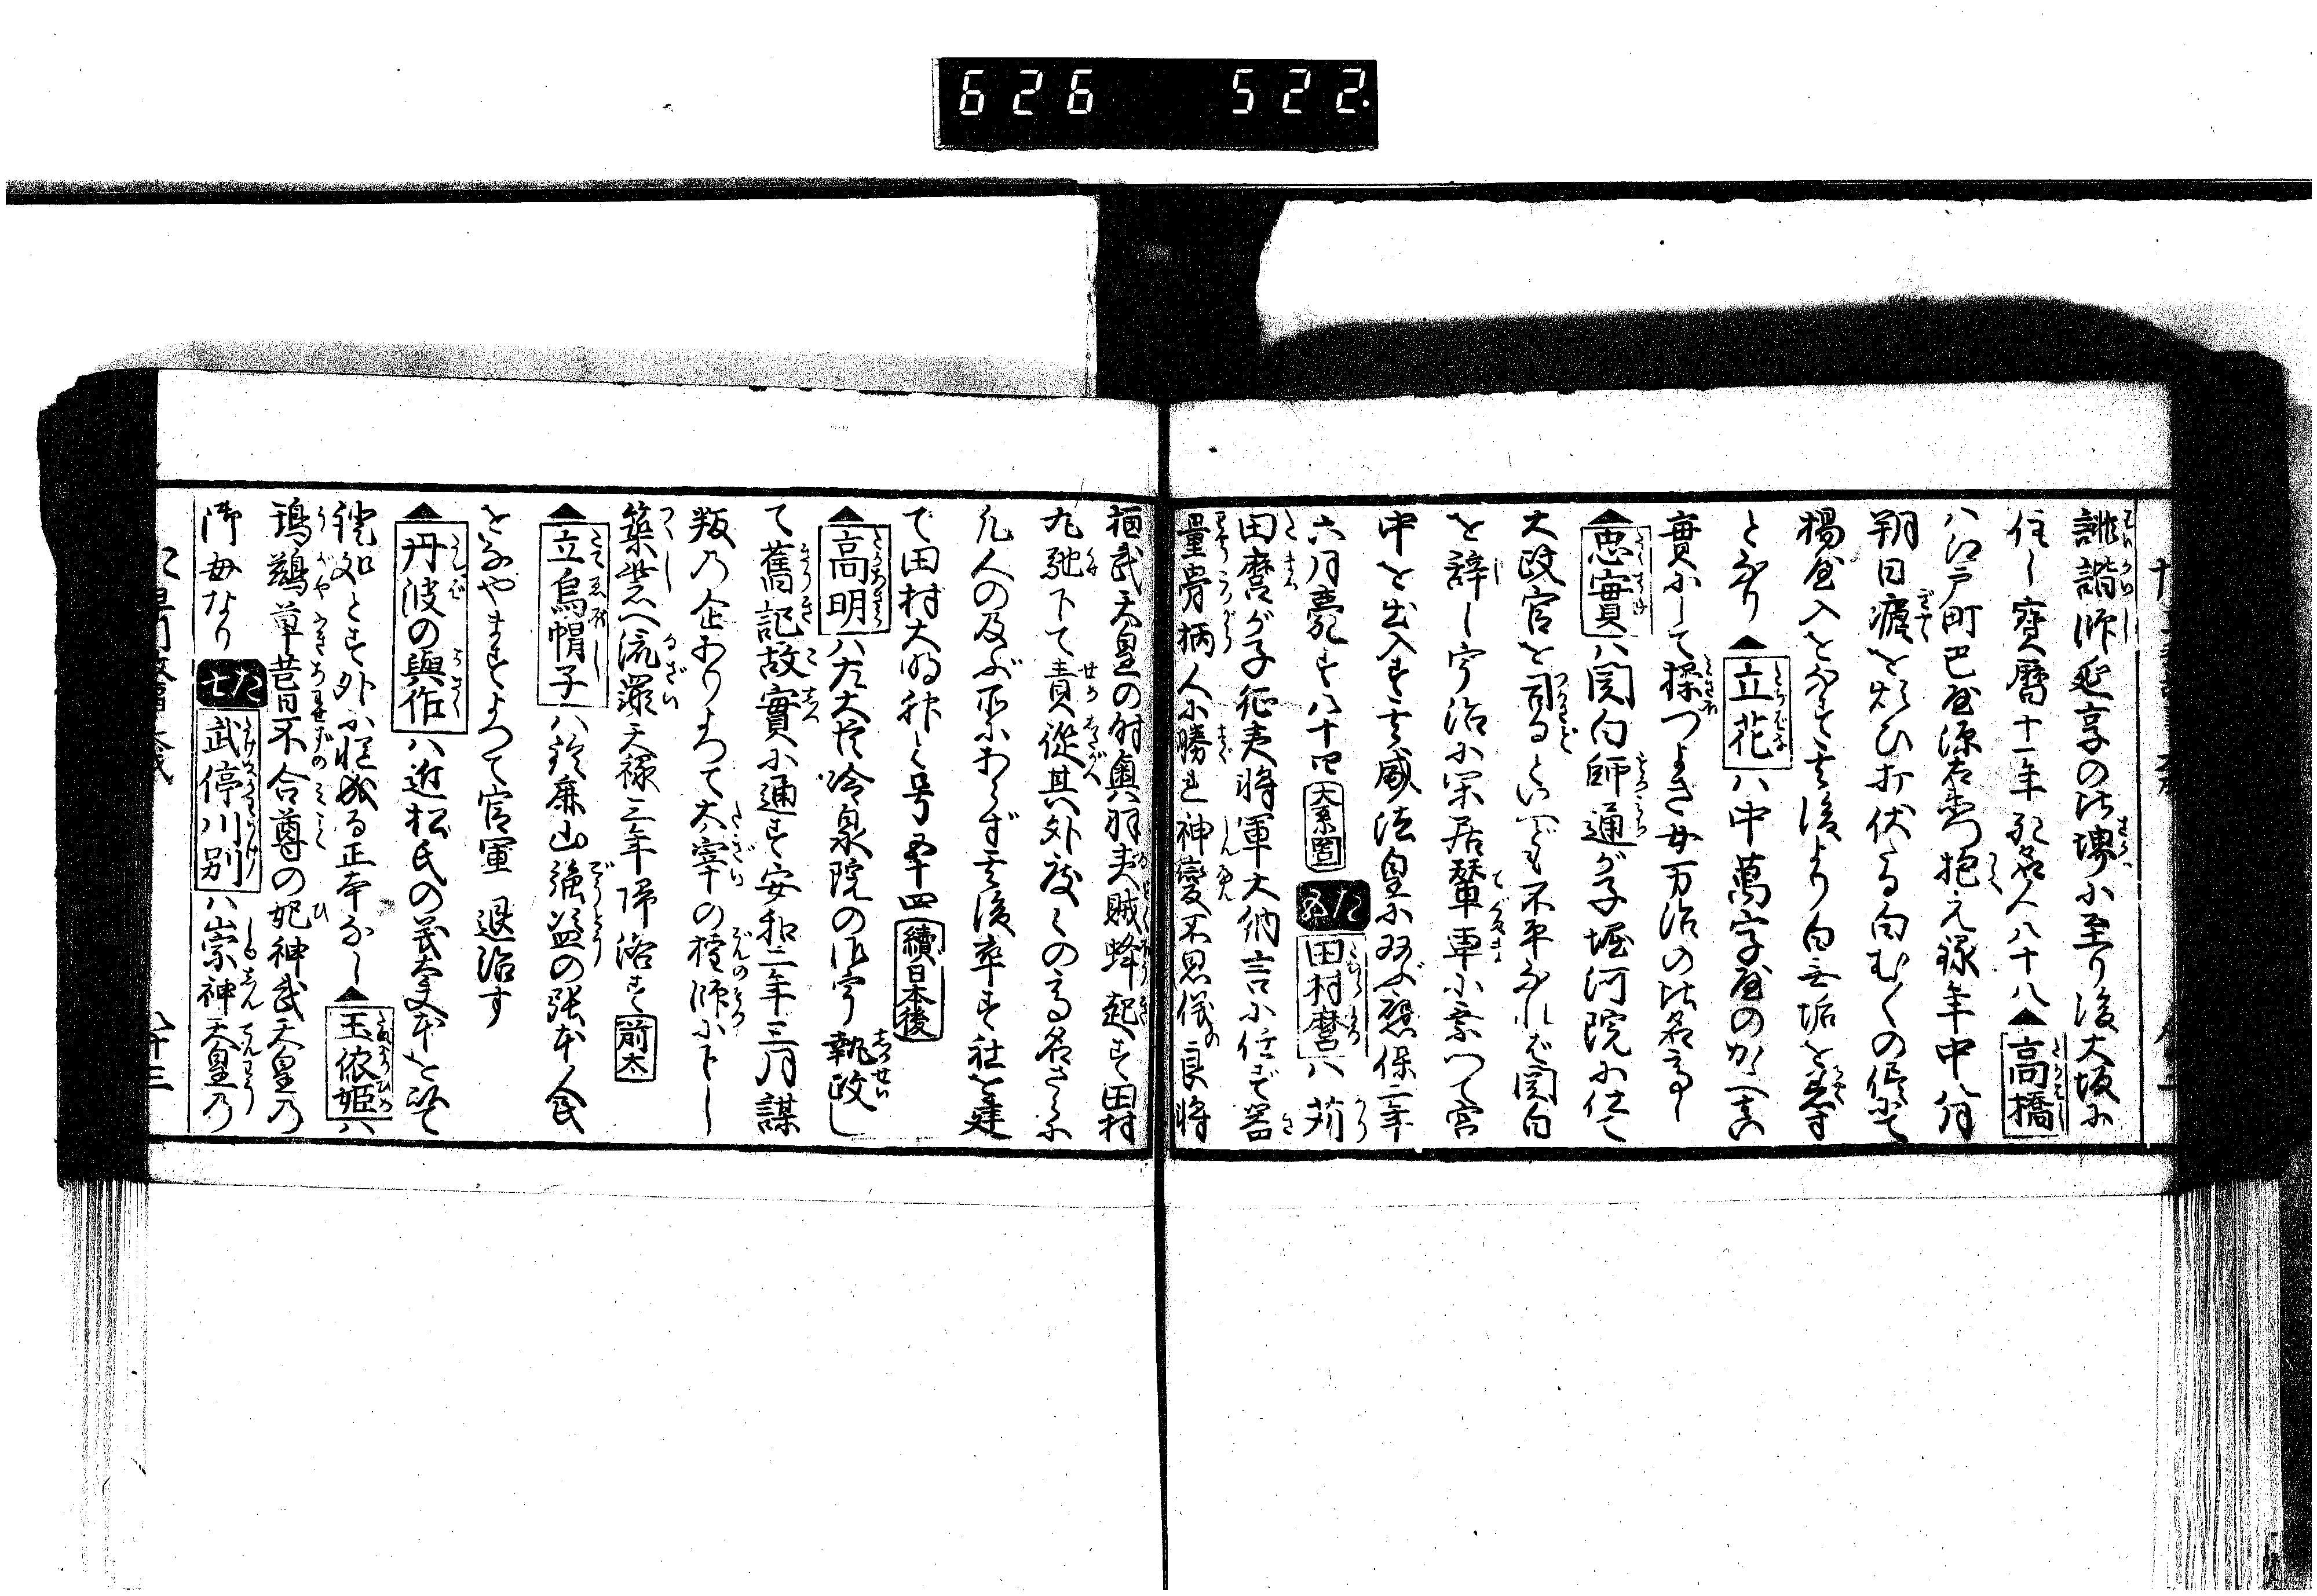 626 522
誹諧師延享の比堺に至り後大坂に
住し寶暦十一年死す名人八十八▲高橋
ハ江戸町巴屋源右衛門抱え元禄年中八月
朔日瘧を煩ひ打伏たる白むくの儘にて
揚屋入をなす其後より白無垢を着す
となり▲立花ハ中萬字屋のかゝへ
實にして操つよき女万治の比名高し
▲忠實ハ関白師通が子堀河院に仕て
大政官を司るといへども不平なれば関白
を辞し宇治に閑居輦車に乗つて宮
中を出入す其威法皇に双ぶ應保二年
六月薨す八十四 大系図 た五 田村麿ハ苅
田麿が子征夷将軍大納言に任ず器
量骨柄人に勝れ神變不思儀の良将
桓武天皇の時奥羽夷賊蜂起す田村
丸馳下て責從其外度々の高名さらに
凡人の及ぶ所にあらず其後卒す社を建
て田村大明神と号 五十四 續日本後
▲高明ハ左大臣冷泉院の御宇執政し
て舊記故實に通ず安和二年三月謀
叛の企ありよつて太宰の権師に下し
築紫へ流罪天禄三年帰洛す 前太
▲立烏帽子ハ鈴鹿山強盗の張本人民
をなやますよつて官軍退治す
▲丹波の與作ハ近松氏の
譃如とす外に慥成る正本なし▲玉依姫ハ
鸕鷀草葺不合尊の妃神武天皇乃
御母なり た七 武渟川別ハ崇神天皇乃
八十三